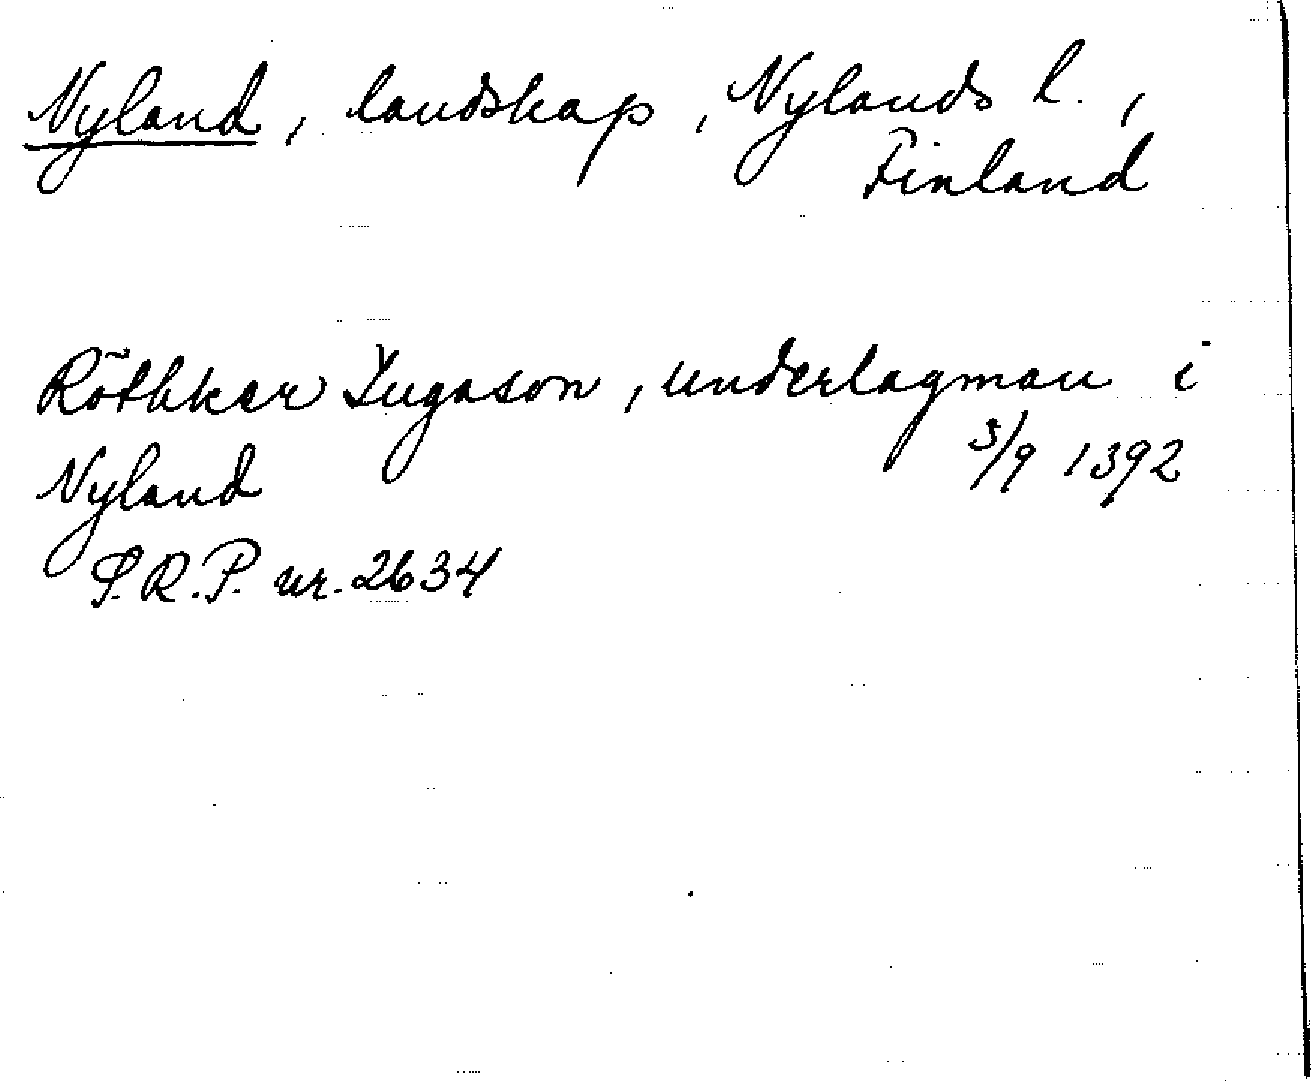 Nyland, landskap, Nylands l.,
Finland
Röthker Ingason, underlagman i
Nyland 5/9 1392
S.R.P. nr. 2634